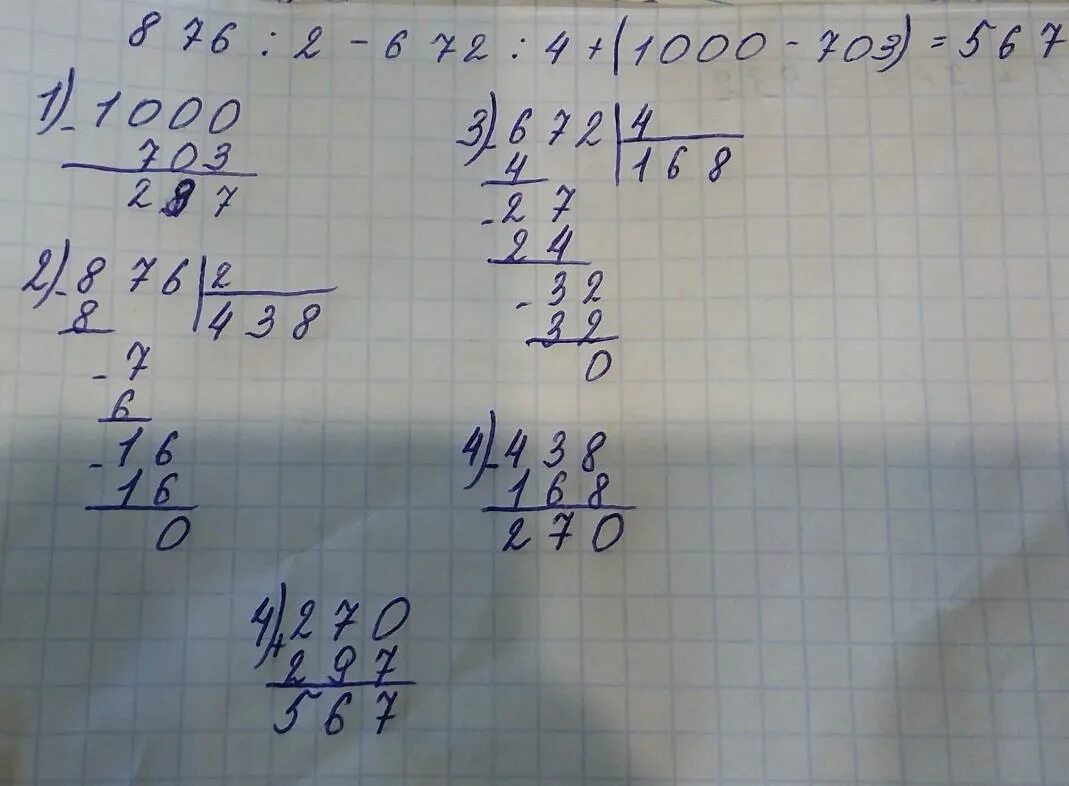 876 : 2 - 672 : 4 + (1000 - 703) = 567
1) - 1000
703
297
2) - 876 | 2
8 438
- 7
6
- 16
16
0
3) - 672 | 4
4 168
- 27
24
- 32
32
0
4) - 438
168
270
4) + 270
297
567